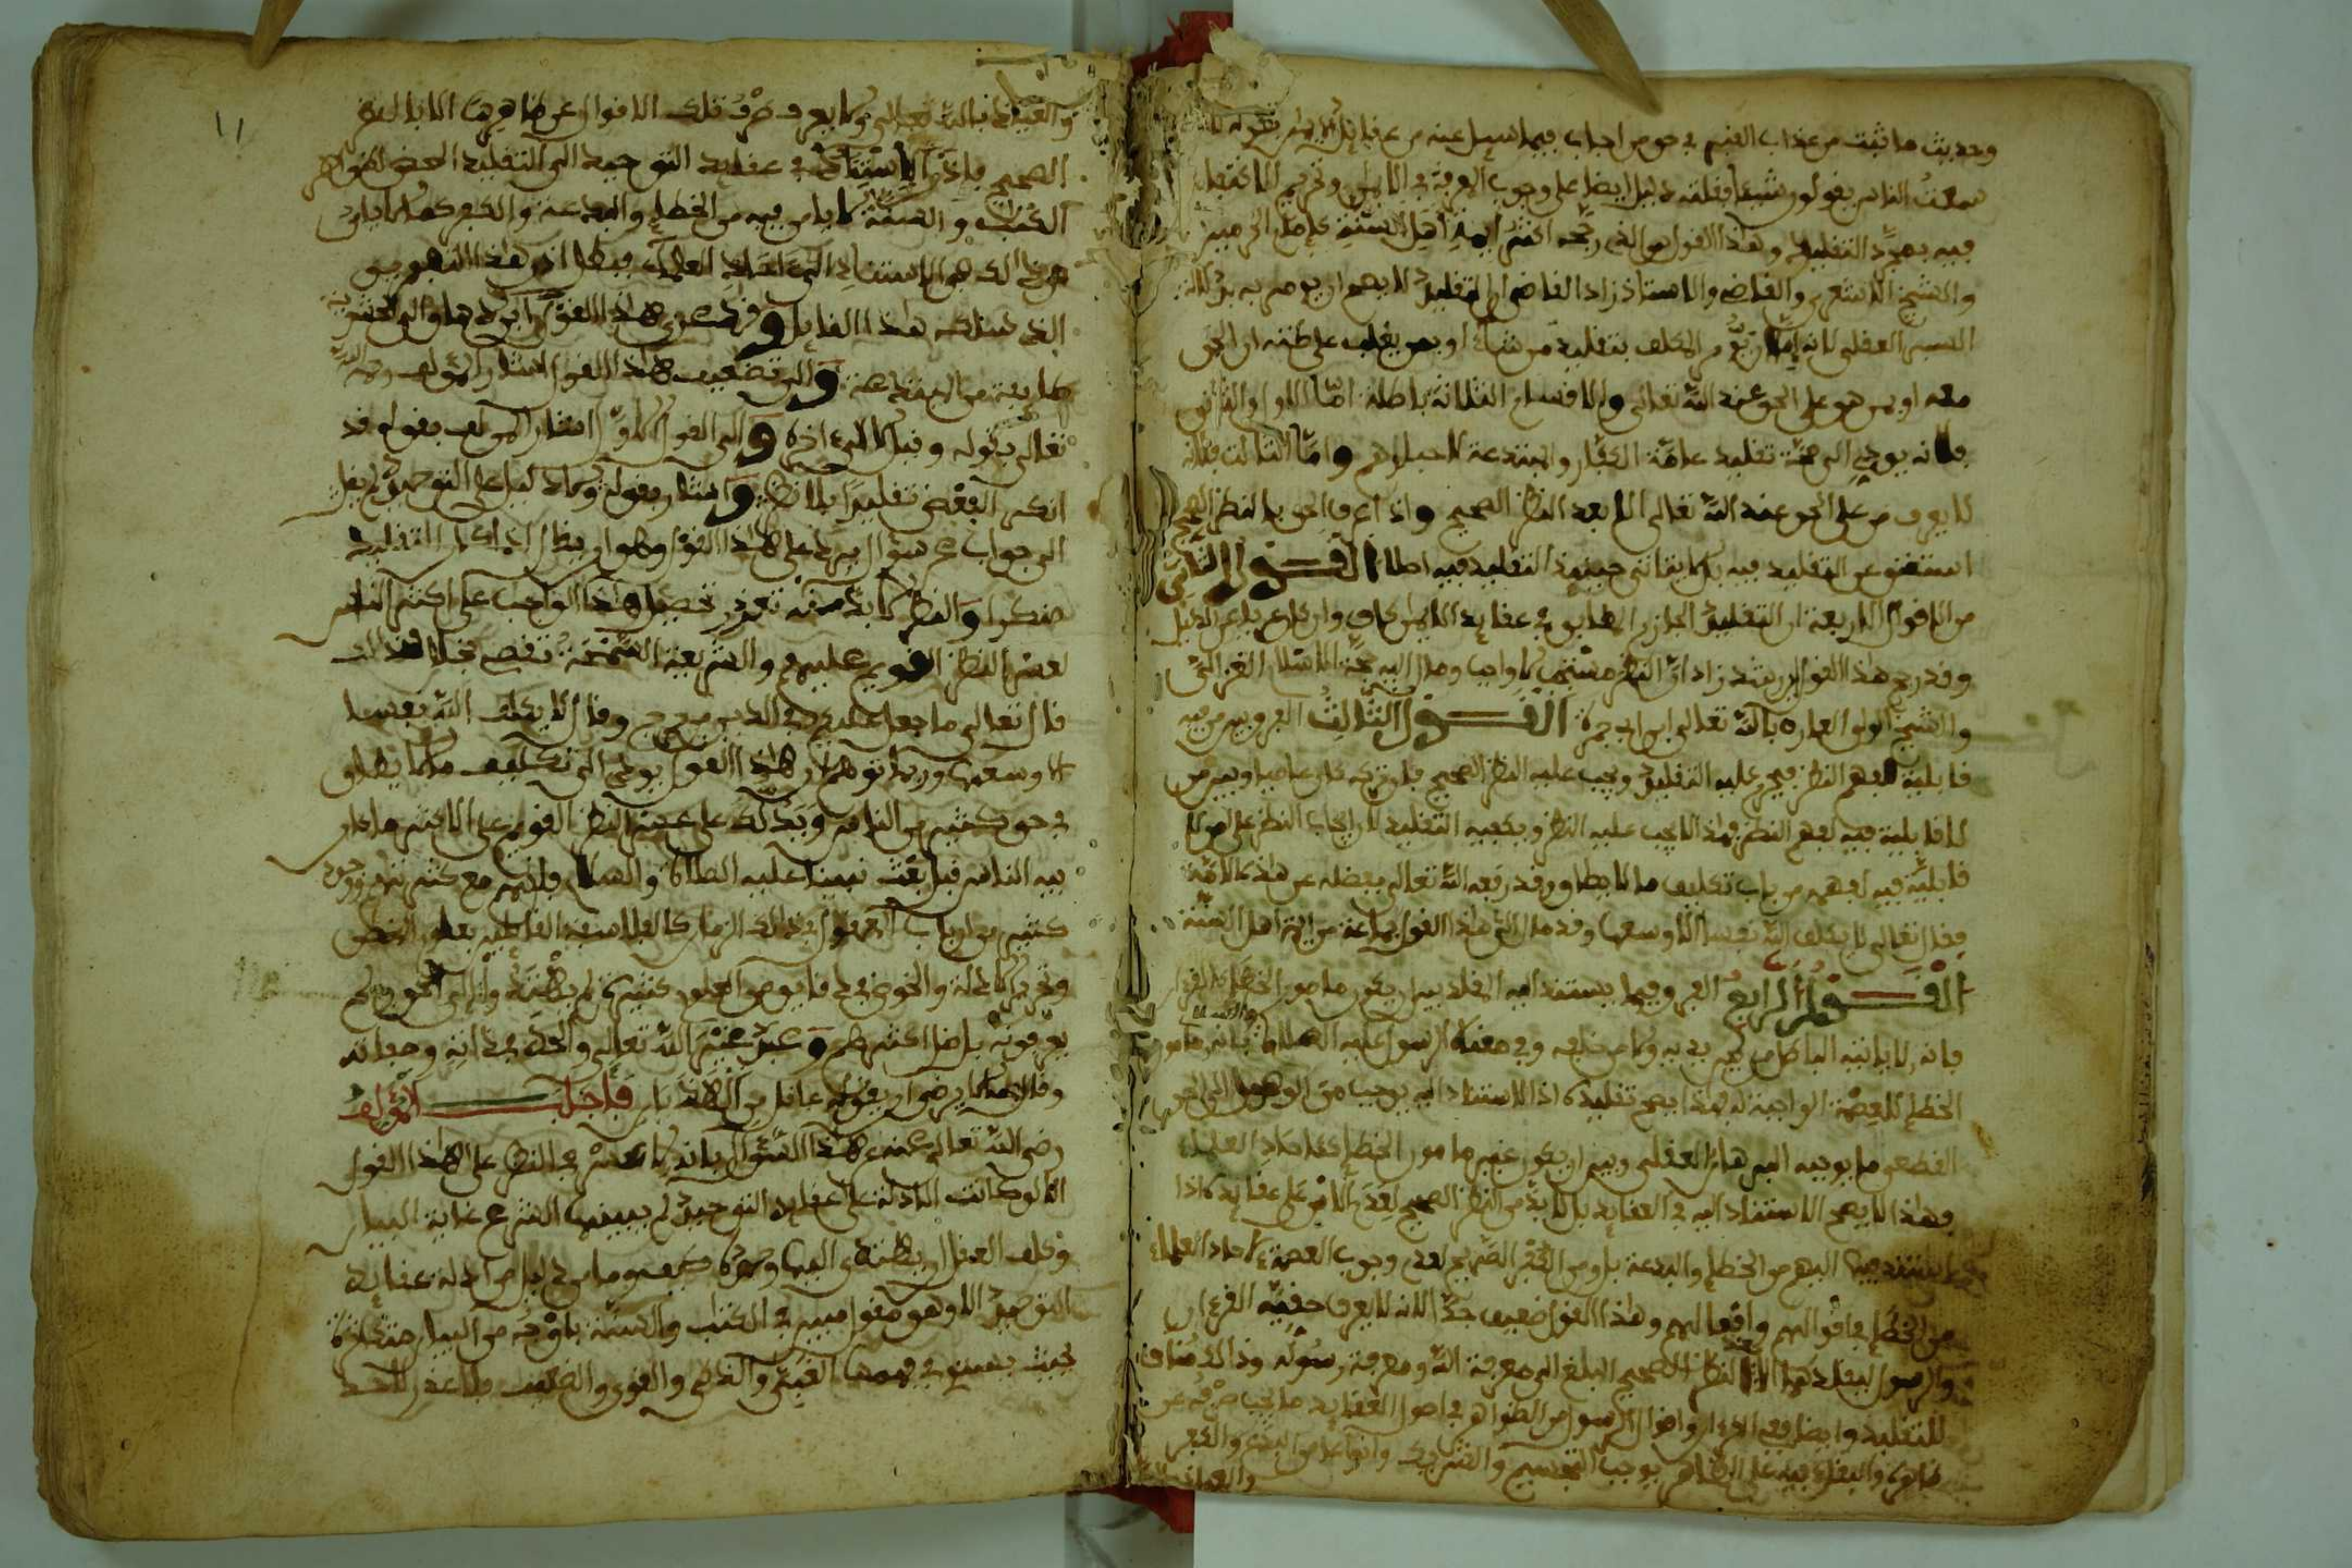 وحديث ما ثبت من عذاب القبر في حق من اجاب فيما سيل عنه من عقايد الايمان بقوله
سمعت الناس يقولون شيئا فقلته دليل ايضا على وجوب المعرفة في الايمان وتحريم الاكتفاء
فيه بمجرد التقليد وهذا القول هو الذي رجحه اكثر ايمة اهل السنة كامام الحرمين
والشيخ الاشعري والقاضي والاستاذ زاد القاضي ان التقليد لا يصح ان يومر به
العقلي لانه اما ان يومر المكلف بتقليد من شاء او بمن يغلب على ظنه ان الحق
معه او بمن هو على الحق عند الله تعالى والاقسام الثلاثة باطلة اما الاول والثاني
فلانه يودي الى صحة تقليد عامة الكفار والمبتدعة لاحبارهم واما الثالث فلانه
لا يعرف من على الحق عند الله تعالى الا بعد النظر الصحيح واذا عرف الحق بالنظر الصحيح
استغنى عن التقليد فيه بل لا يتاتى حينيذ التقليد فيه اصلا القول الثاني
من الاقوال الاربعة ان التقليد الجازم المطابق في عقايد الايمان كاف وان كان عريا عن الدليل
وقد رجح هذا القول ابن رشد زاد ان النظر مستحب لا واجب ومال اليه حجة الاسلام الغزالي
والشيخ الولي العارف بالله تعالى ابن ابي جمرة القول الثالث الفرق بين من فيه
قابلية لفهم النظر فيحرم عليه التقليد ويجب عليه النظر الصحيح فان تركه كان عاصيا وبين من
لا قابلية فيه لفهم النظر فهذا لا يجب عليه النظر ويكفيه التقليد لان ايجاب النظر على من لا
قابلية فيه لفهمه من باب تكليف ما لا يطاق وقد رفعه الله تعالى بفضله عن هذه الامة
فقال تعالى لا يكلف الله نفسا الا وسعها وقد مال الى هذا القول جماعة من ايمة اهل السنة
القول الرابع الفرق فيما يستند اليه المقلد بين ان يكون مامون الخطا كالقرءان
فانه لا ياتيه الباطل من بين يديه ولا من خلفه وفي معناه الرسول عليه الصلاة والسلام فانه مامون
الخطا للعصمة الواجبة له فهذا يصح تقليده اذ الاستناد اليه يوجب من الوصول الى الحق
القطعي ما يوجبه البرهان العقلي وبين ان يكون غير مامون الخطا كاحاد العلماء
فهذا لا يصح الاستناد اليه في العقايد بل لا بد من النظر الصحيح لعدم الامن على عقايده اذا
استند فيها اليهم من الخطا والبدعة بل ومن الكفر الصريح لعدم وجوب العصمة لاحاد العلماء
من الخطا في اقوالهم وافعالهم وهذا القول ضعيف جدا لانه لا يعرف حقية القرءان
والرسول ليقلدهما الا بالنظر الصحيح المبلغ الى معرفة الله ومعرفة رسوله وذالك مناف
للتقليد وايضا ففي القرءان واقوال الرسول من الظواهر في اصول العقايد ما يجب صرفه عن
ظاهره والبقاء فيه على الظاهر يوجب التجسيم والتشريك وانواعا من البدع والكفر
والعياذ
والعياذ بالله تعالى ولا يعرف صرف تلك الاقوال عن ظاهرها الا بالنظر
الصحيح فاذن الاستناد في عقايد التوحيد الى التقليد المحض لظواهر
الكتاب والسنة لا يامن فيه من الخطا والبدعة والكفر كما لا يامن
من ذالك في الاستناد الى احاد العلماء فبطل اذن هذا التفريق
الذي سلكه هذا القايل وقد عزى هذا القول ابن دهاق الى الحشوية
طايفة من المبتدعة والى تضعيف هذا القول اشار المولف رحمه الله
تعالى بقوله وقيل الى اخره والى القول الاول اشار المولف بقوله قد
انكر البعض تقليدا بلا نظر واشار بقوله وما دليل على التوحيد لم يقل
الى جواب عن سؤال يرد على هذا القول وهو ان يقال اذا كان التقليد
منكرا والنظر لا بد منه تعذر تحصيل هذا الواجب على اكثر الناس
لعسر النظر القويم عليهم والشريعة السمحة تقتضي خلاف ذالك
قال تعالى ما جعل عليكم في الدين من حرج وقال لا يكلف الله نفسا
الا وسعها وربما توهم ان هذا القول يودي الى تكليف ما لا يطاق
في حق كثير من الناس ويدلك على عسر النظر القويم على الاكثر ما كان
فيه الناس قبل بعث نبينا عليه الصلاة والسلام فانهم مع كثرتهم ووجود
كثير من ارباب العقول في ذالك الزمان كالفلاسفة القايلين بعلم المنطق
وتحرير الادلة والخوض في دقايق من العلوم كثيرة لم يهتدوا الى الحق ولم
يعرفونه بل ضل اكثرهم وعبد غير الله تعالى والحد في ذاته وصفاته
وقال ما لا يرضى ان يقوله عاقل من الهذيان فاجاب المؤلف
رضي الله تعالى عنه عن هذا السؤال بانه لا عسر في النظر على هذا القول
الا لو كانت الادلة على عقايد التوحيد لم يبينها الشرع غاية البيان
وكلف العقل ان يهتدي اليها وحده كيف وما من دليل من ادلة عقايد
التوحيد الا وهو مقرر مبين في الكتاب والسنة باوجه من البيان مختلفة
بحيث يستوي في فهمها الغبي والذكي والقوي والضعيف فلا عذر لاحد